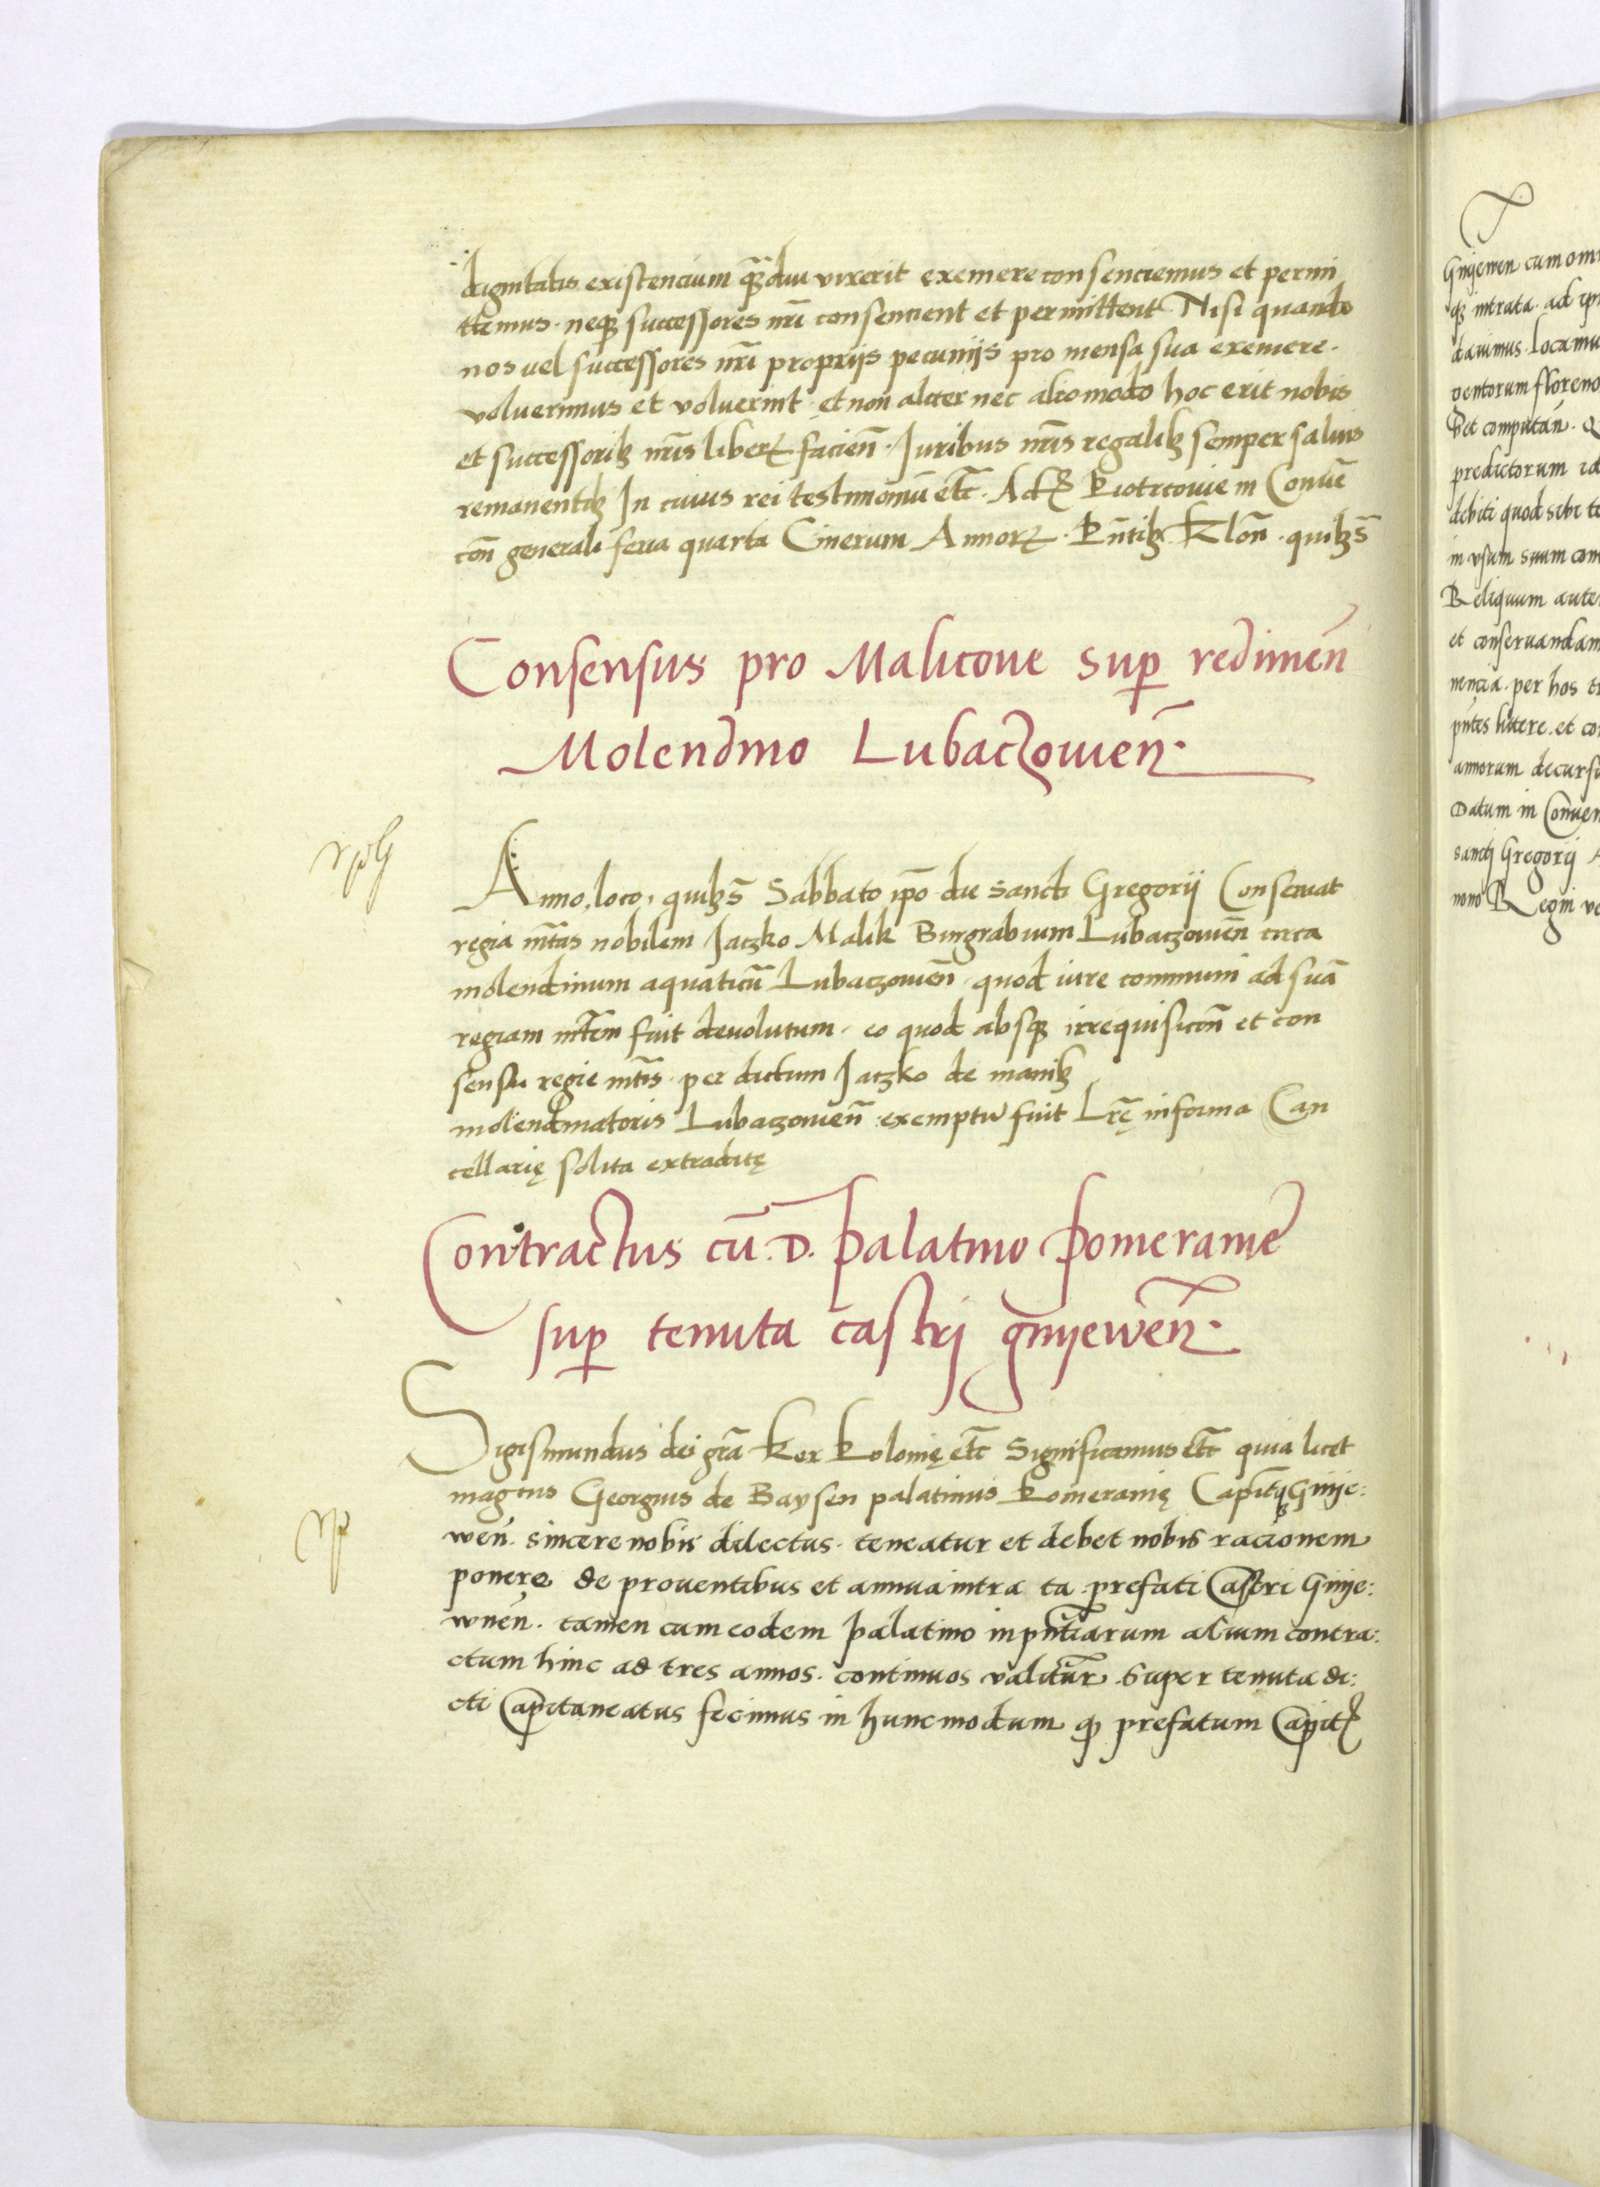 dignitatis existencium qũdiu vixerit exemere consenciemus et permi
ttemus. neqꝫ successores nrĩ consencient et permittent Nisi quando
nos vel successores nrĩ proprijs pecunijs pro mensa sua exemere.
voluerimus et voluerint. et non aliter nec alio modo hoc erit nobis
et successoribꝫ nrĩs liberꝝ facien̄. Juribus nrĩs regalibꝫ semper saluis
remanentibꝫ In cuius rei testimoniũ etc̃. Act̃ Piotrcouie in Conuẽ
con̄ generali feria quarta Cinerum Annorꝝ. Pñtibꝫ Rlon̄. quibꝫs̃
Consensus pro Malicoue sup redimen̄
Molendino Lubaczouien̄.
Anno, loco, quibꝫs̃ Sabbato ip̃o die sancti Gregorij Conseruat
regia mt̃as nobilem Jaczko Malik Burgrabium Lubaczouien̄ circa
molendinum aquaticũ Lubaczouien̄. quod iure communi ad suã
regiam mt̃em fuit deuolutum. eo quod absqꝫ irrequisicon̄ et con
sensu regie mt̃is. per dictum Jaczko de manibꝫ
molendinatoris Lubaczouien̄. exemptũ fuit Lrẽ in forma Can
cellarię solita extraditę
Contractus cũ. D. Palatino Pomeranie
sup tenuta castrj gnyewen̄.
Sigismundus dei grã Rex Polonię etc̃ Significamus etc̃ quia licet
magcus Georgius de Baysen palatinus Pomeranię Capitꝰ Gnije:
wen̄. sincere nobis dilectus. teneatur et debet nobis racionem
ponere de prouentibus et annua intra ta prefati Castri Gnije:
wnen̄. tamen cum eodem palatino in pñtiarum alium contra:
ctum hinc ad tres annos. continuos valitur̃. Super tenuta di:
cti Capitaneatus fecimus in hunc modum ꝙ prefatum Capitꝫ
Gnijewen cum omn
qꝫ intrata. ad
dauimus. locamu
uentorum floreno
bet computan̄.
predictorum
debiti quod sibi
in vsum suum
Reliquum aute
et conseruandam
nencia. per hos
pñtes littere. et
annorum decursu
Datum in Conuen
sanctj Gregorij
nono Regni